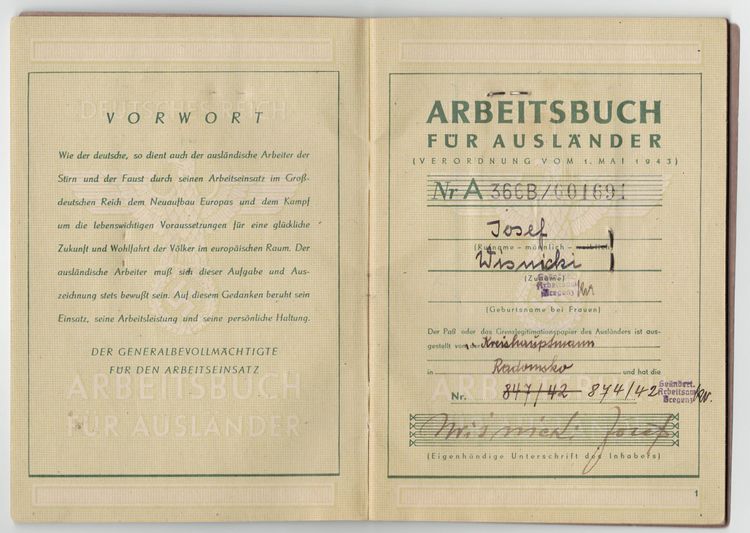 DEUTSCHES REICH
VORWORT
Wie der deutsche, so dient auch der ausländische Arbeiter der
Stirn und der Faust durch seinen Arbeitseinsatz im Groß-
deutschen Reich dem Neuaufbau Europas und dem Kampf
um die lebenswichtigen Voraussetzungen für eine glückliche
Zukunft und Wohlfahrt der Völker im europäischen Raum. Der
ausländische Arbeiter muß sich dieser Aufgabe und Aus-
zeichnung stets bewußt sein. Auf diesem Gedanken beruht sein
Einsatz, seine Arbeitsleistung und seine persönliche Haltung.
DER GENERALBEVOLLMÄCHTIGTE
FÜR DEN ARBEITSEINSATZ
ARBEITSBUCH
FÜR AUSLÄNDER
ARBEITSBUCH
FÜR AUSLÄNDER
(VERORDNUNG VOM 1. MAI 1943)
Nr A 366B/001691
Josef
(Rufname – männlich –
Wisnicki
(Zuname)
Geändert.
Arbeitsamt
Bregenz
(Geburtsname bei Frauen)
Der Paß oder das Grenzlegitimationspapier des Ausländers ist aus-
gestellt von der Kreishauptmann
in Radomsko und hat die
Nr. 847/42 874/42
Geändert.
Arbeitsamt
Bregenz
Wiśnicki Josef
(Eigenhändige Unterschrift des Inhabers)
1